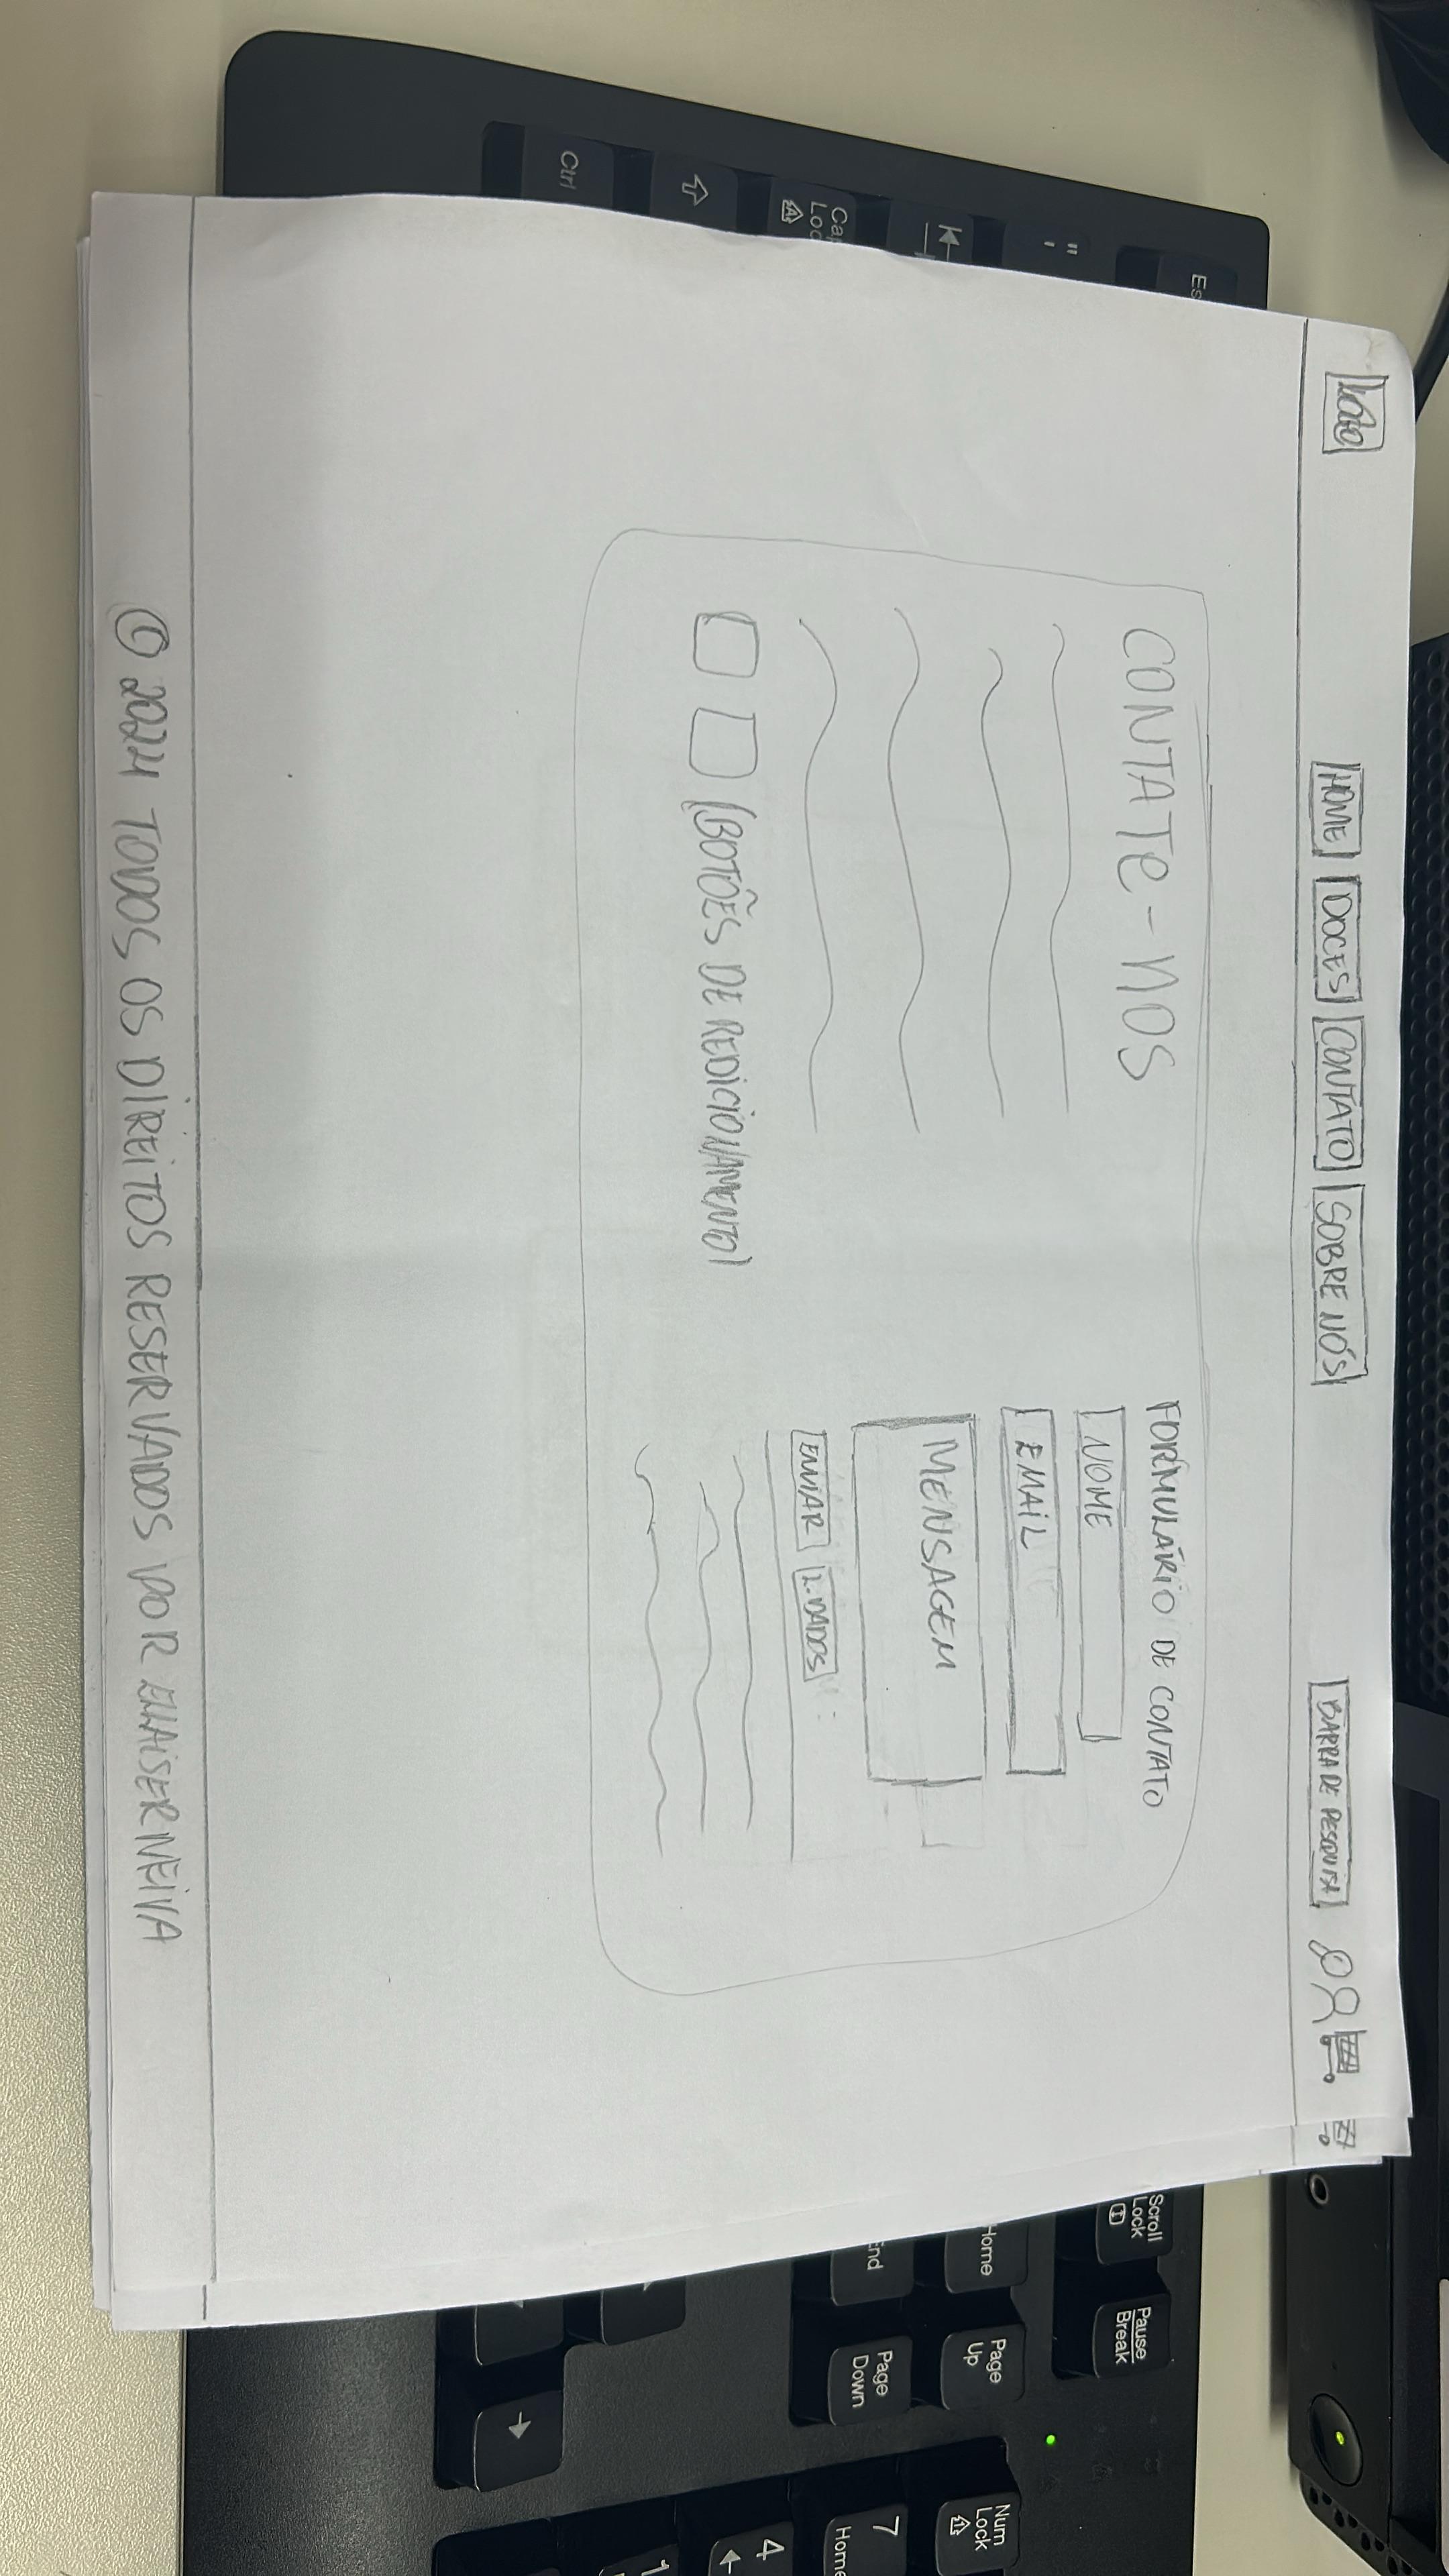 LOGO
HOME DOCES CONTATO SOBRE NÓS
BARRA DE PESQUISA
CONTATE-NOS
(BOTÕES DE REDICIONAMENTO)
FORMULÁRIO DE CONTATO
NOME
EMAIL
MENSAGEM
ENVIAR L.DADOS
© 2024 TODOS OS DIREITOS RESERVADOS POR
Ctrl
Scroll Lock
Pause Break
Home
Page Up
Page Down
Num Lock
7 Home
4
1